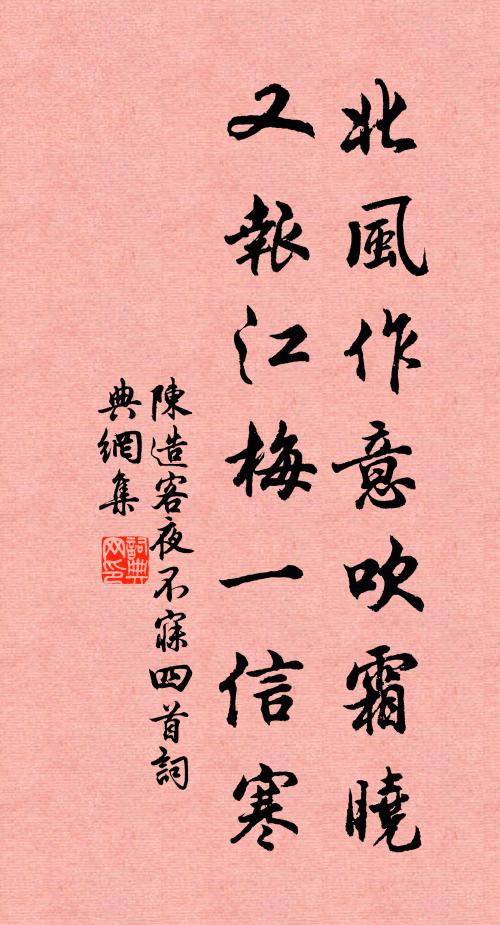 北風作意吹霜曉
又報江梅一信寒
陳造客夜不寐四首詞
典網集
詞典
网印